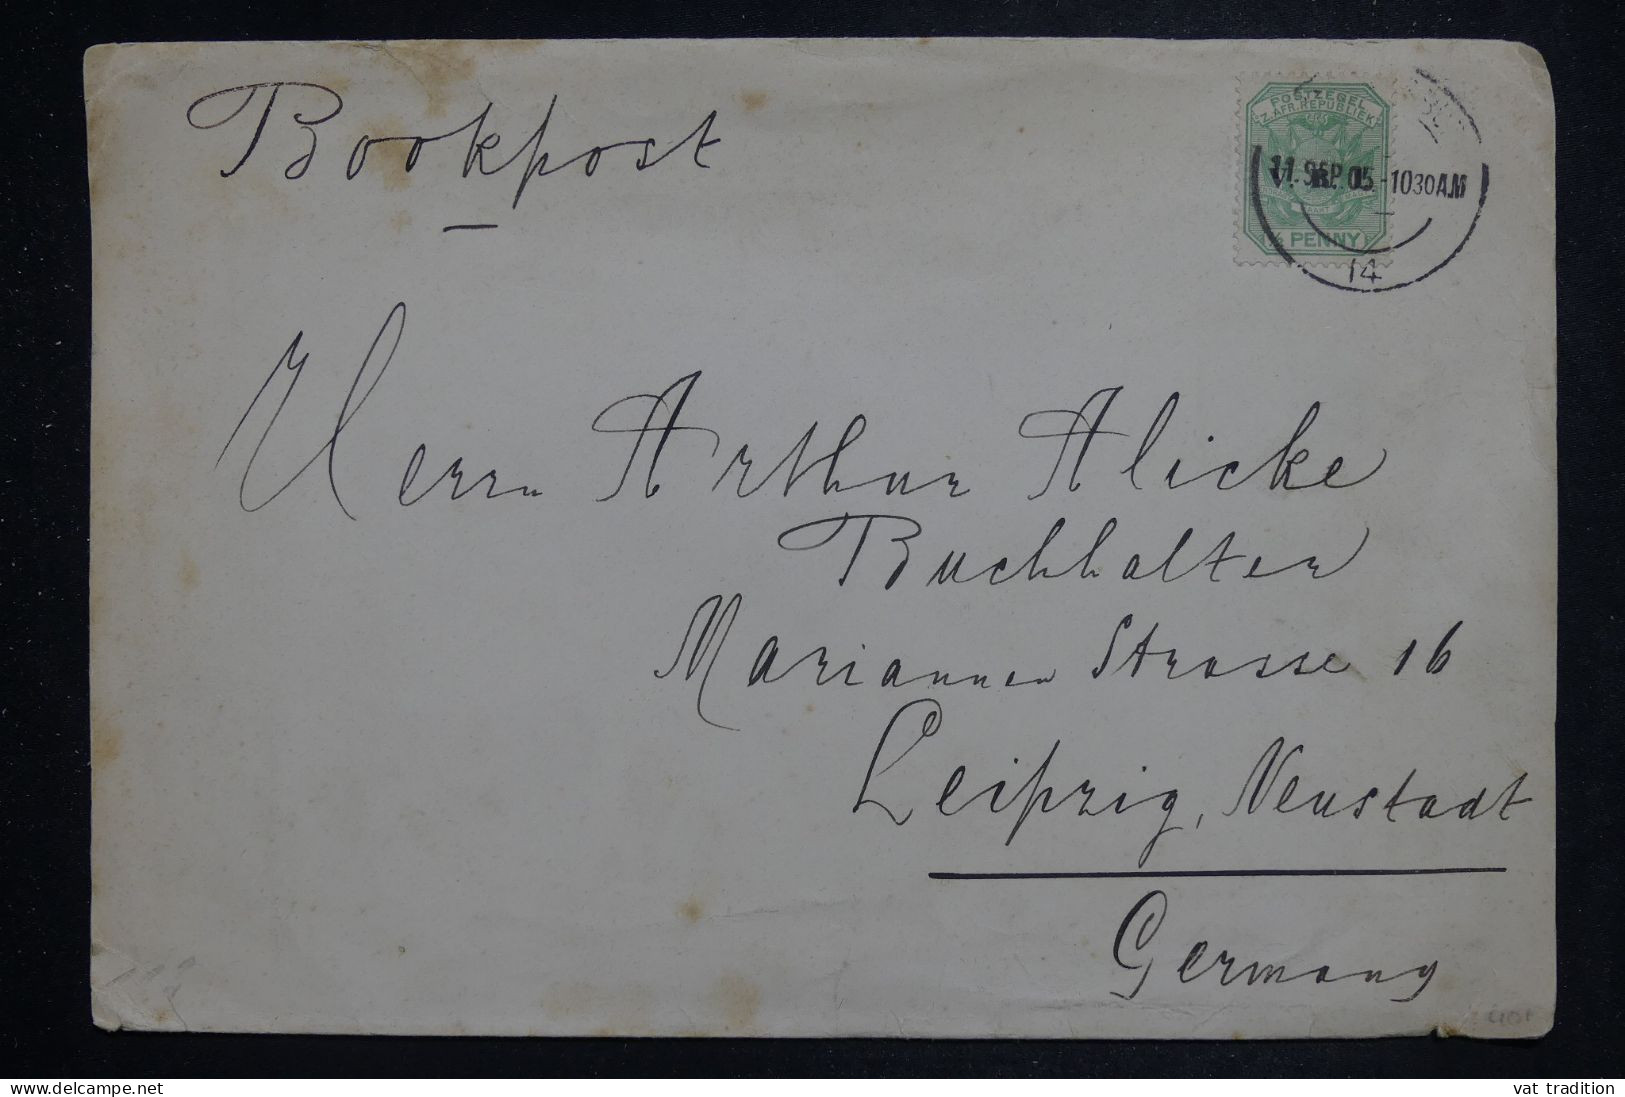 Bookpost
POSTZEGEL
Z. AFR. REPUBLIEK
11. SEP. 05 -10 30 AM
V. R. I.
½ PENNY
14
Herrn Arthur Alicke
Buchhalter
Mariannen Strasse 16
Leipzig, Neustadt
Germany
www.delcampe.net
vat tradition